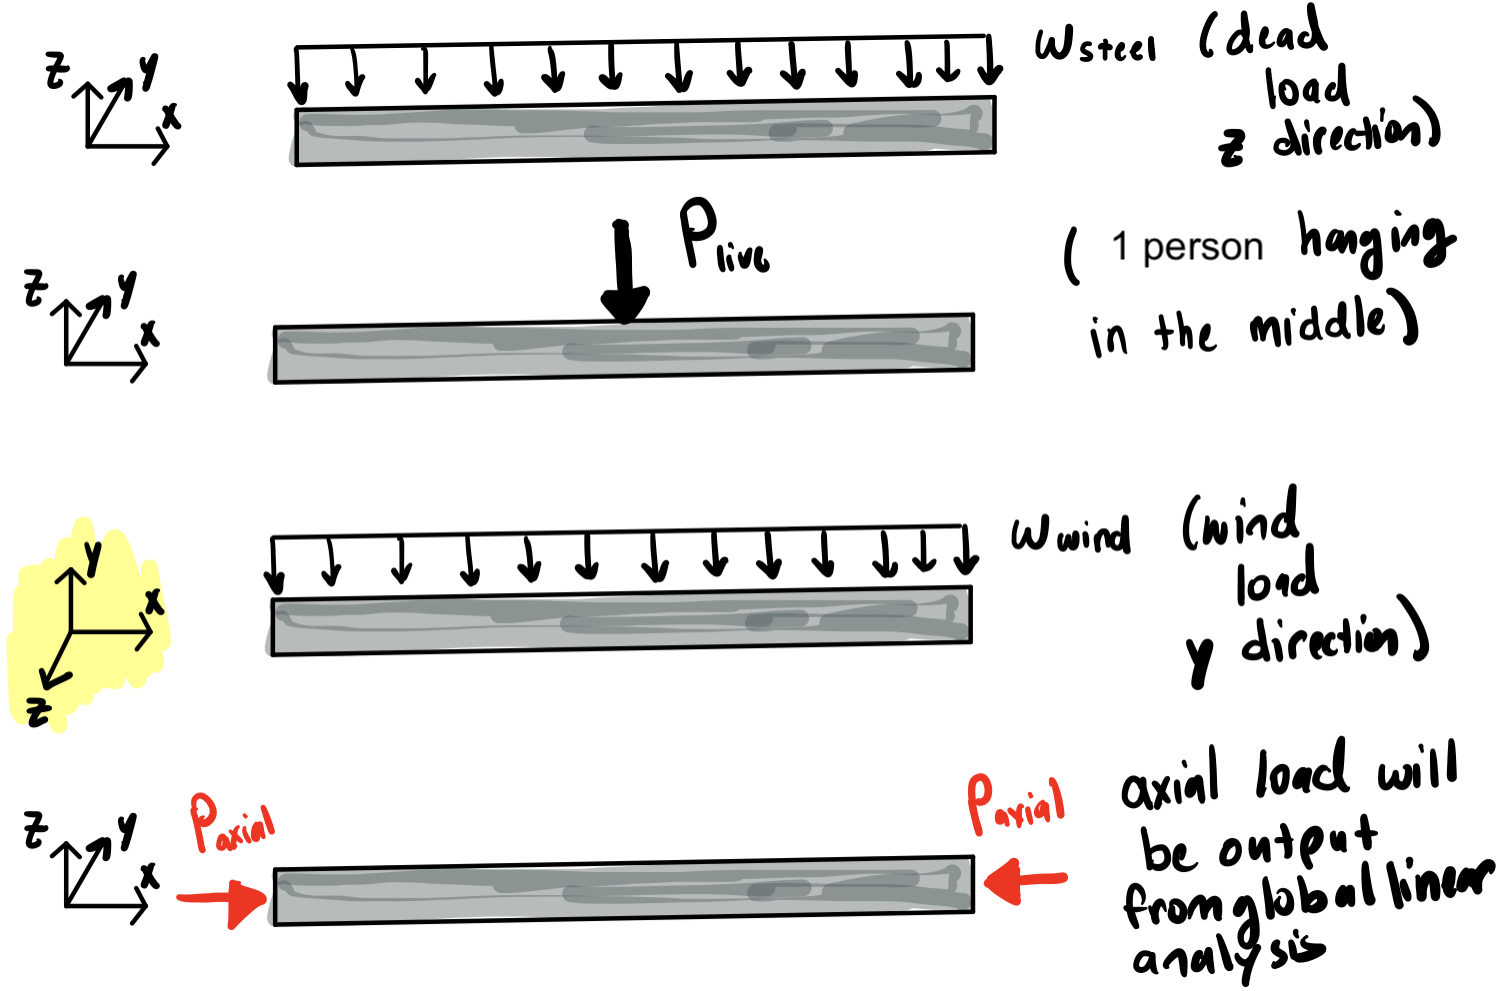 z y x
w steel (dead
load
z direction)
z y x
P live
( 1 person hanging
in the middle)
y x z
w wind (wind
load
y direction)
z y x
P axial
P axial
axial load will
be output
from global linear
analysis